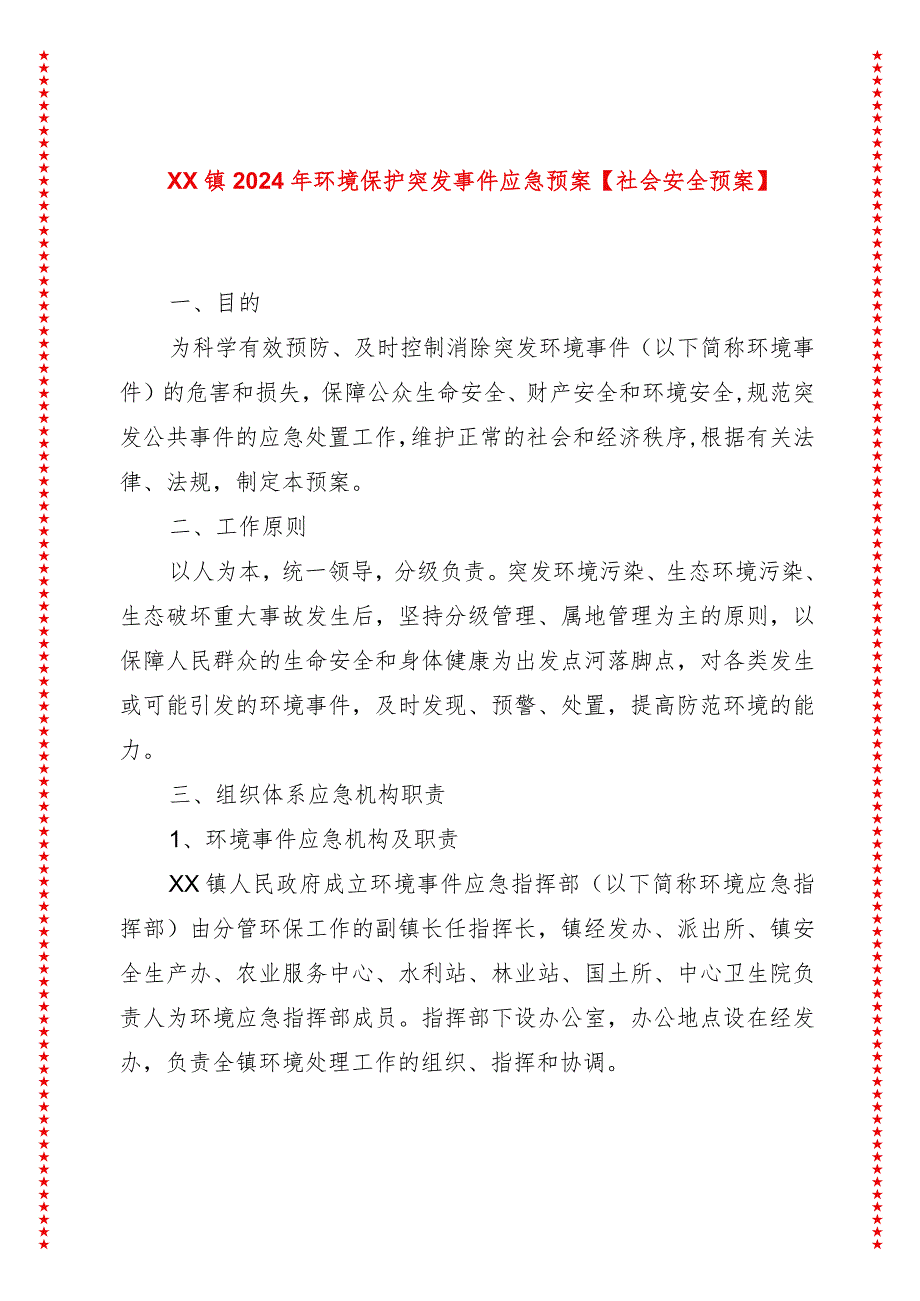 XX镇2024年环境保护突发事件应急预案【社会安全预案】
一、目的
为科学有效预防、及时控制消除突发环境事件（以下简称环境事
件）的危害和损失，保障公众生命安全、财产安全和环境安全,规范突
发公共事件的应急处置工作,维护正常的社会和经济秩序,根据有关法
律、法规，制定本预案。
二、工作原则
以人为本，统一领导，分级负责。突发环境污染、生态环境污染、
生态破坏重大事故发生后，坚持分级管理、属地管理为主的原则，以
保障人民群众的生命安全和身体健康为出发点河落脚点，对各类发生
或可能引发的环境事件，及时发现、预警、处置，提高防范环境的能
力。
三、组织体系应急机构职责
1、环境事件应急机构及职责
XX镇人民政府成立环境事件应急指挥部（以下简称环境应急指
挥部）由分管环保工作的副镇长任指挥长，镇经发办、派出所、镇安
全生产办、农业服务中心、水利站、林业站、国土所、中心卫生院负
责人为环境应急指挥部成员。指挥部下设办公室，办公地点设在经发
办，负责全镇环境处理工作的组织、指挥和协调。